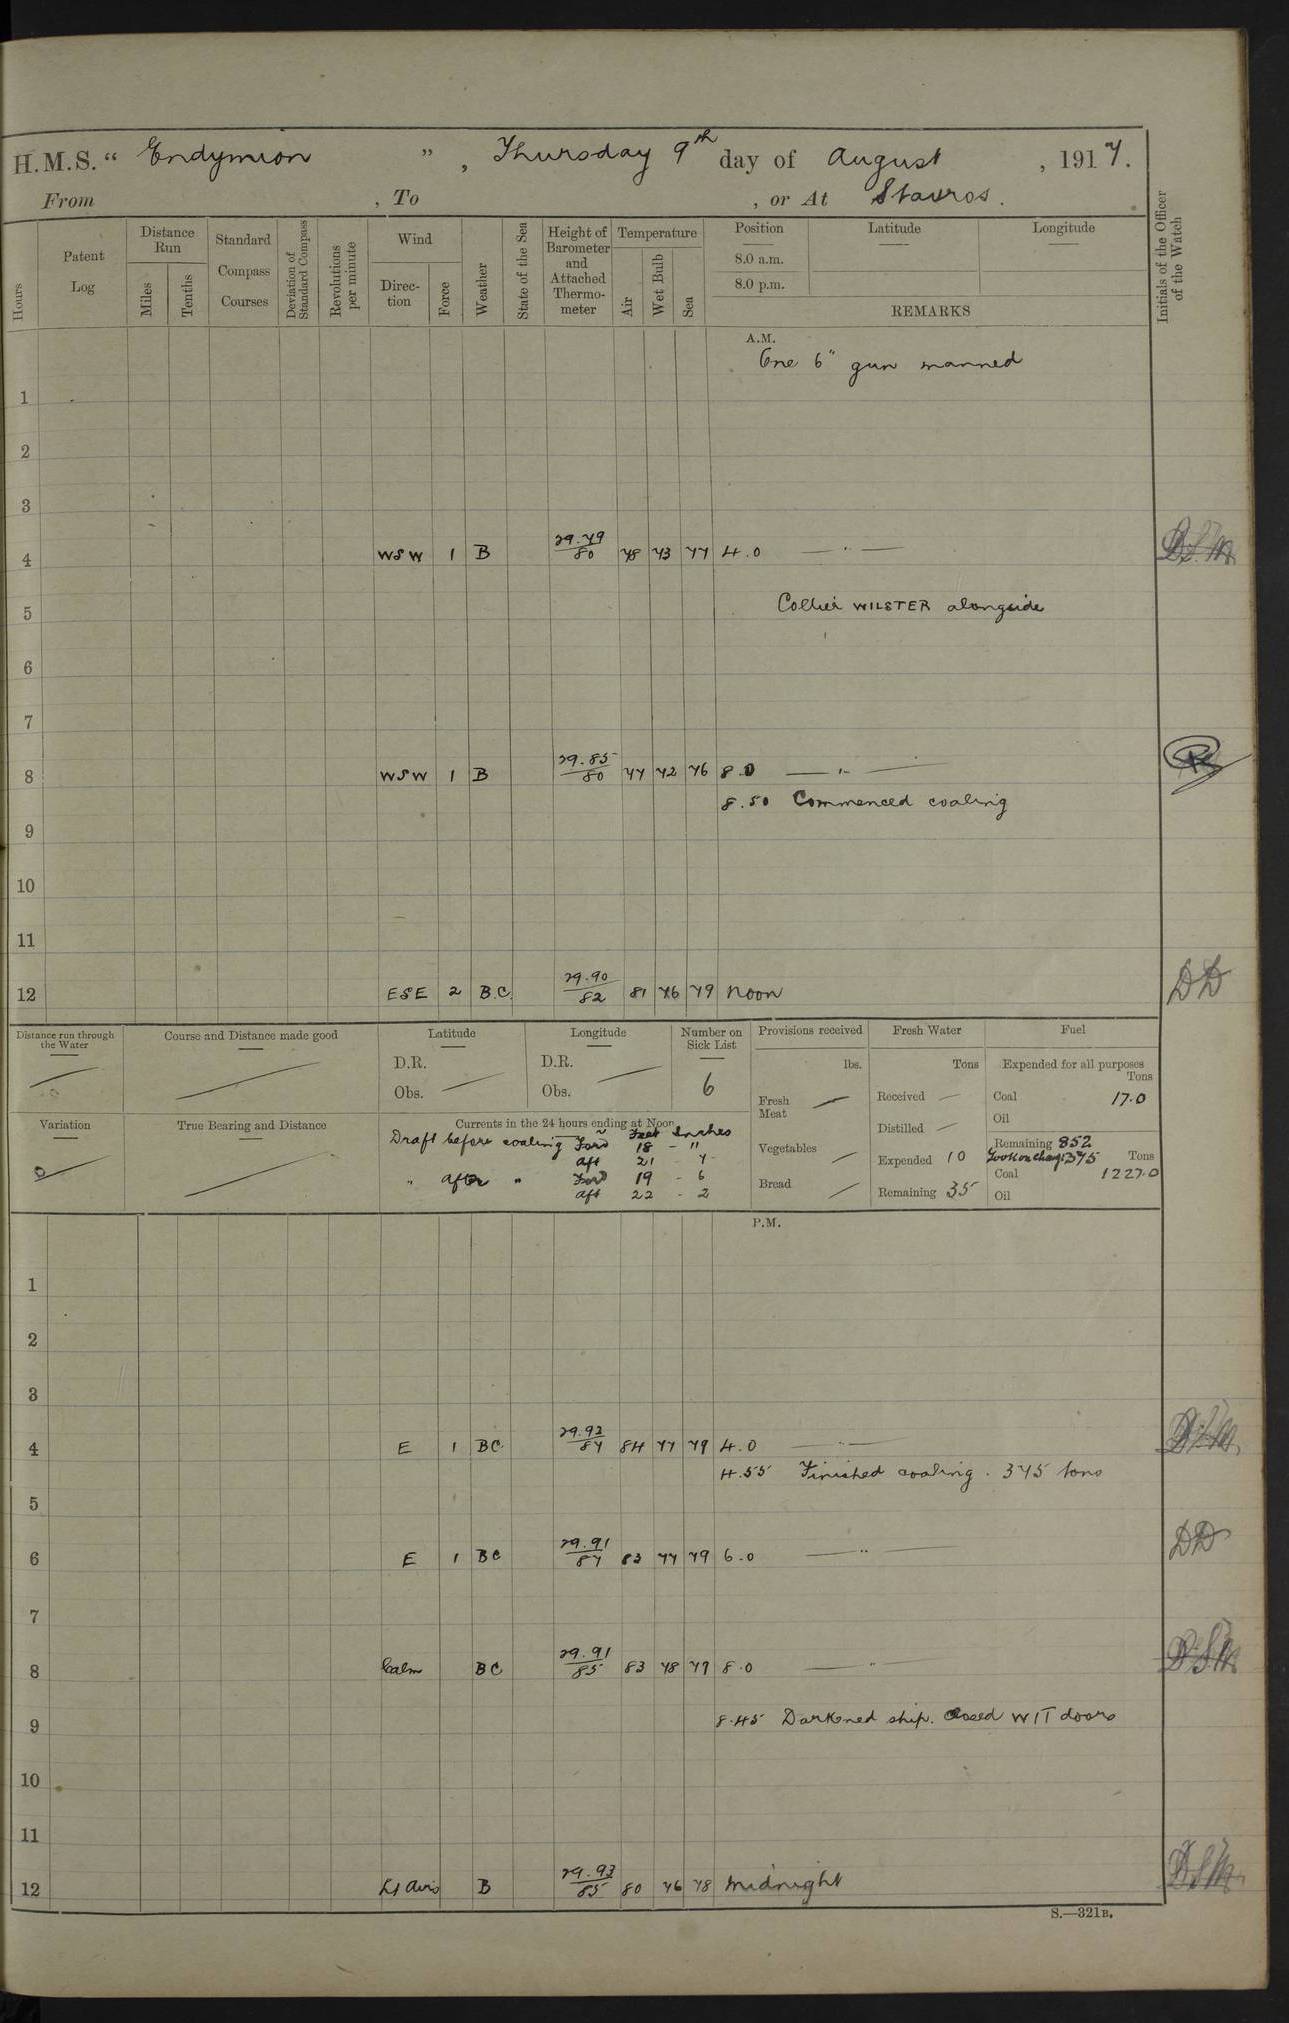 H.M.S. “ Endymion ” , Thursday 9th day of August , 1917.
From , To , or At Stavros.
Hours
Patent Log
Distance Run
Miles
Tenths
Standard Compass Courses
Deviation of Standard Compass
Revolutions per minute
Wind
Direction
Force
Weather
State of the Sea
Height of Barometer and Attached Thermometer
Temperature
Air
Wet Bulb
Sea
Position
8.0 a.m.
8.0 p.m.
Latitude
Longitude
REMARKS
Initials of the Officer of the Watch
A.M.
One 6" gun manned
1
2
3
4 WSW 1 B 29.79 80 78 73 77 4.0 — " —
5 Collier WILSTER alongside
6
7
8 WSW 1 B 29.85 80 77 72 76 8.0 — " —
8.50 Commenced coaling
9
10
11
12 ESE 2 B.C. 29.90 82 81 76 79 Noon DD
Distance run through the Water
Course and Distance made good
Latitude
D.R.
Obs.
Longitude
D.R.
Obs.
Number on Sick List
6
Provisions received
lbs.
Fresh Meat
Vegetables
Bread
Fresh Water
Tons
Received —
Distilled —
Expended 10
Remaining 35
Fuel
Expended for all purposes
Tons
Coal 17.0
Oil
Remaining 852
Took on charge 375 Tons
Coal 1227.0
Oil
Variation
True Bearing and Distance
Currents in the 24 hours ending at Noon
Feet Inches
Draft before coaling Ford 18 - 11
aft 21 - 7
" after " Ford 19 - 6
aft 22 - 2
P.M.
1
2
3
4 E 1 BC 29.92 87 84 77 79 4.0 — " —
4.55 Finished coaling. 375 tons
5
6 E 1 BC 29.91 87 83 77 79 6.0 — " — DD
7
8 Calm BC 29.91 85 83 78 79 8.0 — " —
8.45 Darkened ship. Closed W/T doors
9
10
11
12 Lt Airs B 29.93 85 80 76 78 Midnight
S.—321B.